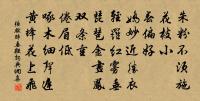 朱粉不須施
花枝小
春偏好
嬌妙近勝衣
輕羅紅霧垂
琵琶金畫鳳
雙條重
倦眉低
啄木細聲遲
黃蜂花上飛